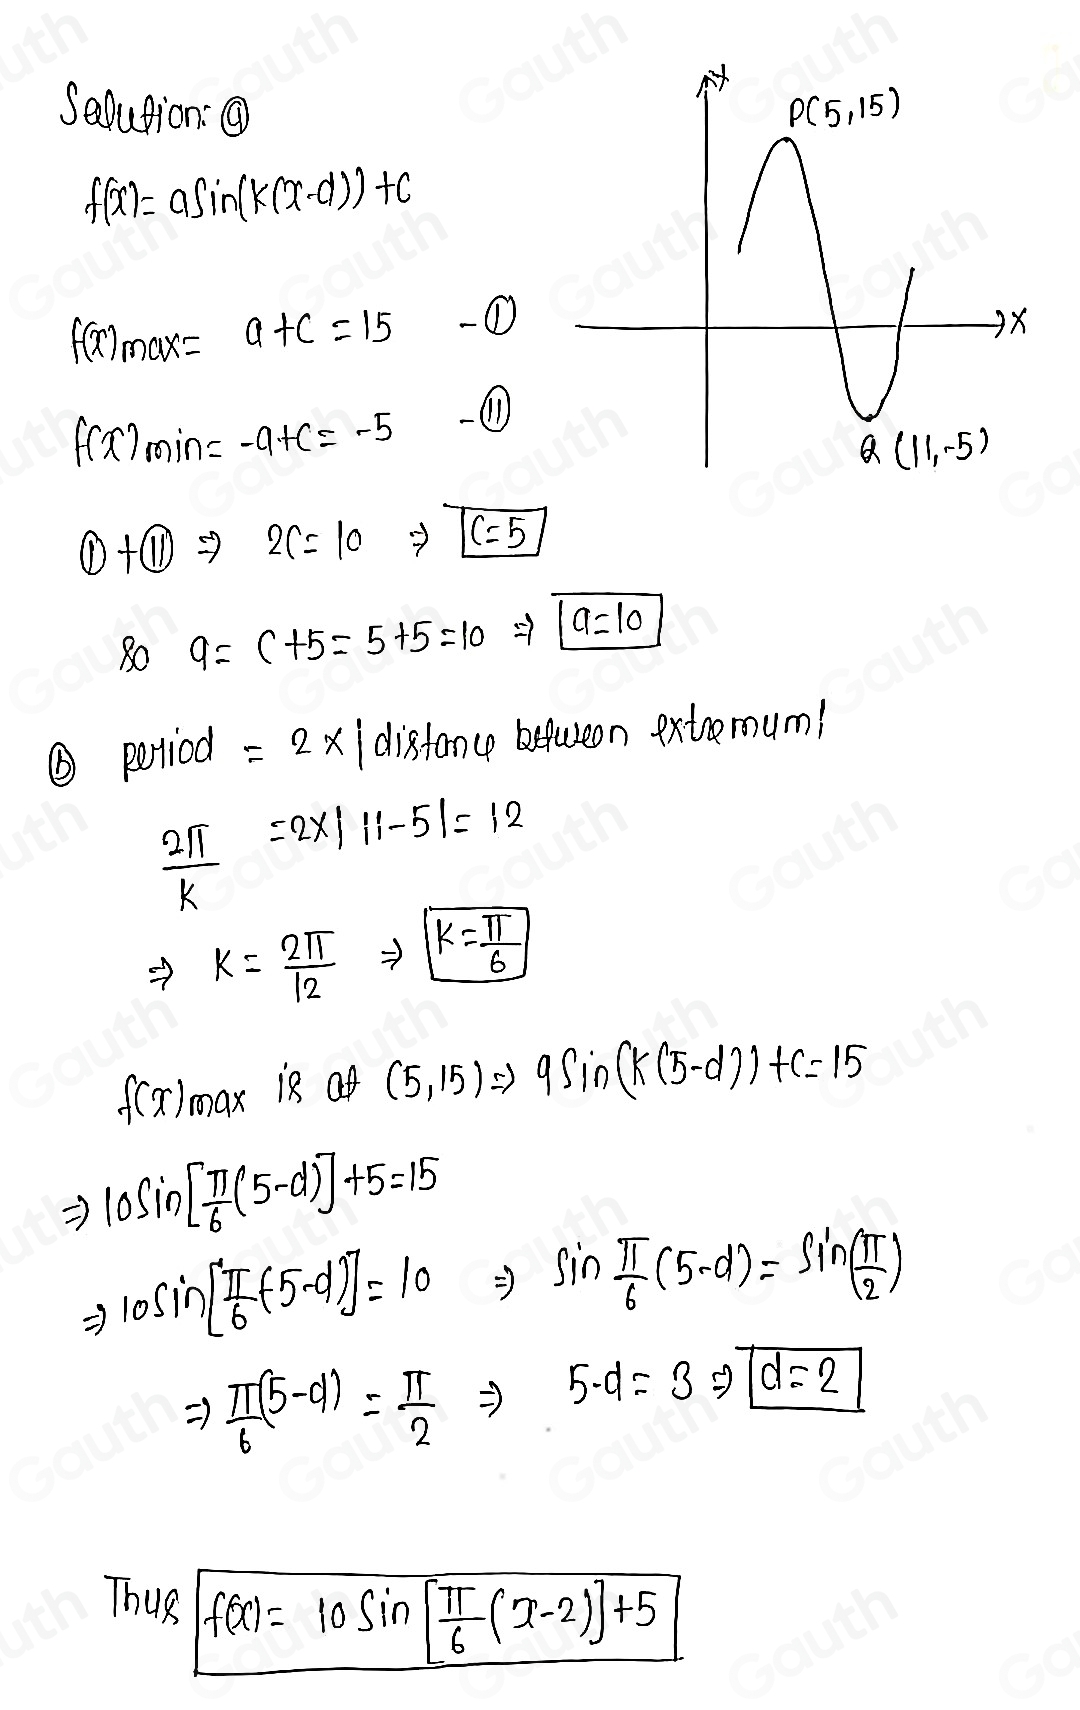 Solution: ⓐ
f(x)= a sin(k(x-d)) +c
y
P(5,15)
x
Q (11,-5)
f(x)max= a+c = 15 -Ⓘ
f(x)min= -a+c= -5 -Ⓘⓘ
Ⓘ+Ⓘⓘ ⇒ 2c= 10 ⇒ c=5
so a= c+5= 5+5=10 ⇒ a=10
ⓑ period = 2 x |distance between extremum|
2π/k =2x| 11-5|= 12
⇒ k= 2π/12 ⇒ k=π/6
f(x)max is at (5,15)⇒ a sin(k(5-d))+c=15
⇒ 10sin[π/6(5-d)]+5=15
⇒ 10sin[π/6(5-d)]= 10 ⇒ sin π/6(5-d)= sin(π/2)
⇒ π/6(5-d) = π/2 ⇒ 5-d= 3 ⇒ d=2
Thus f(x)= 10 sin [π/6(x-2)]+5
Gauth